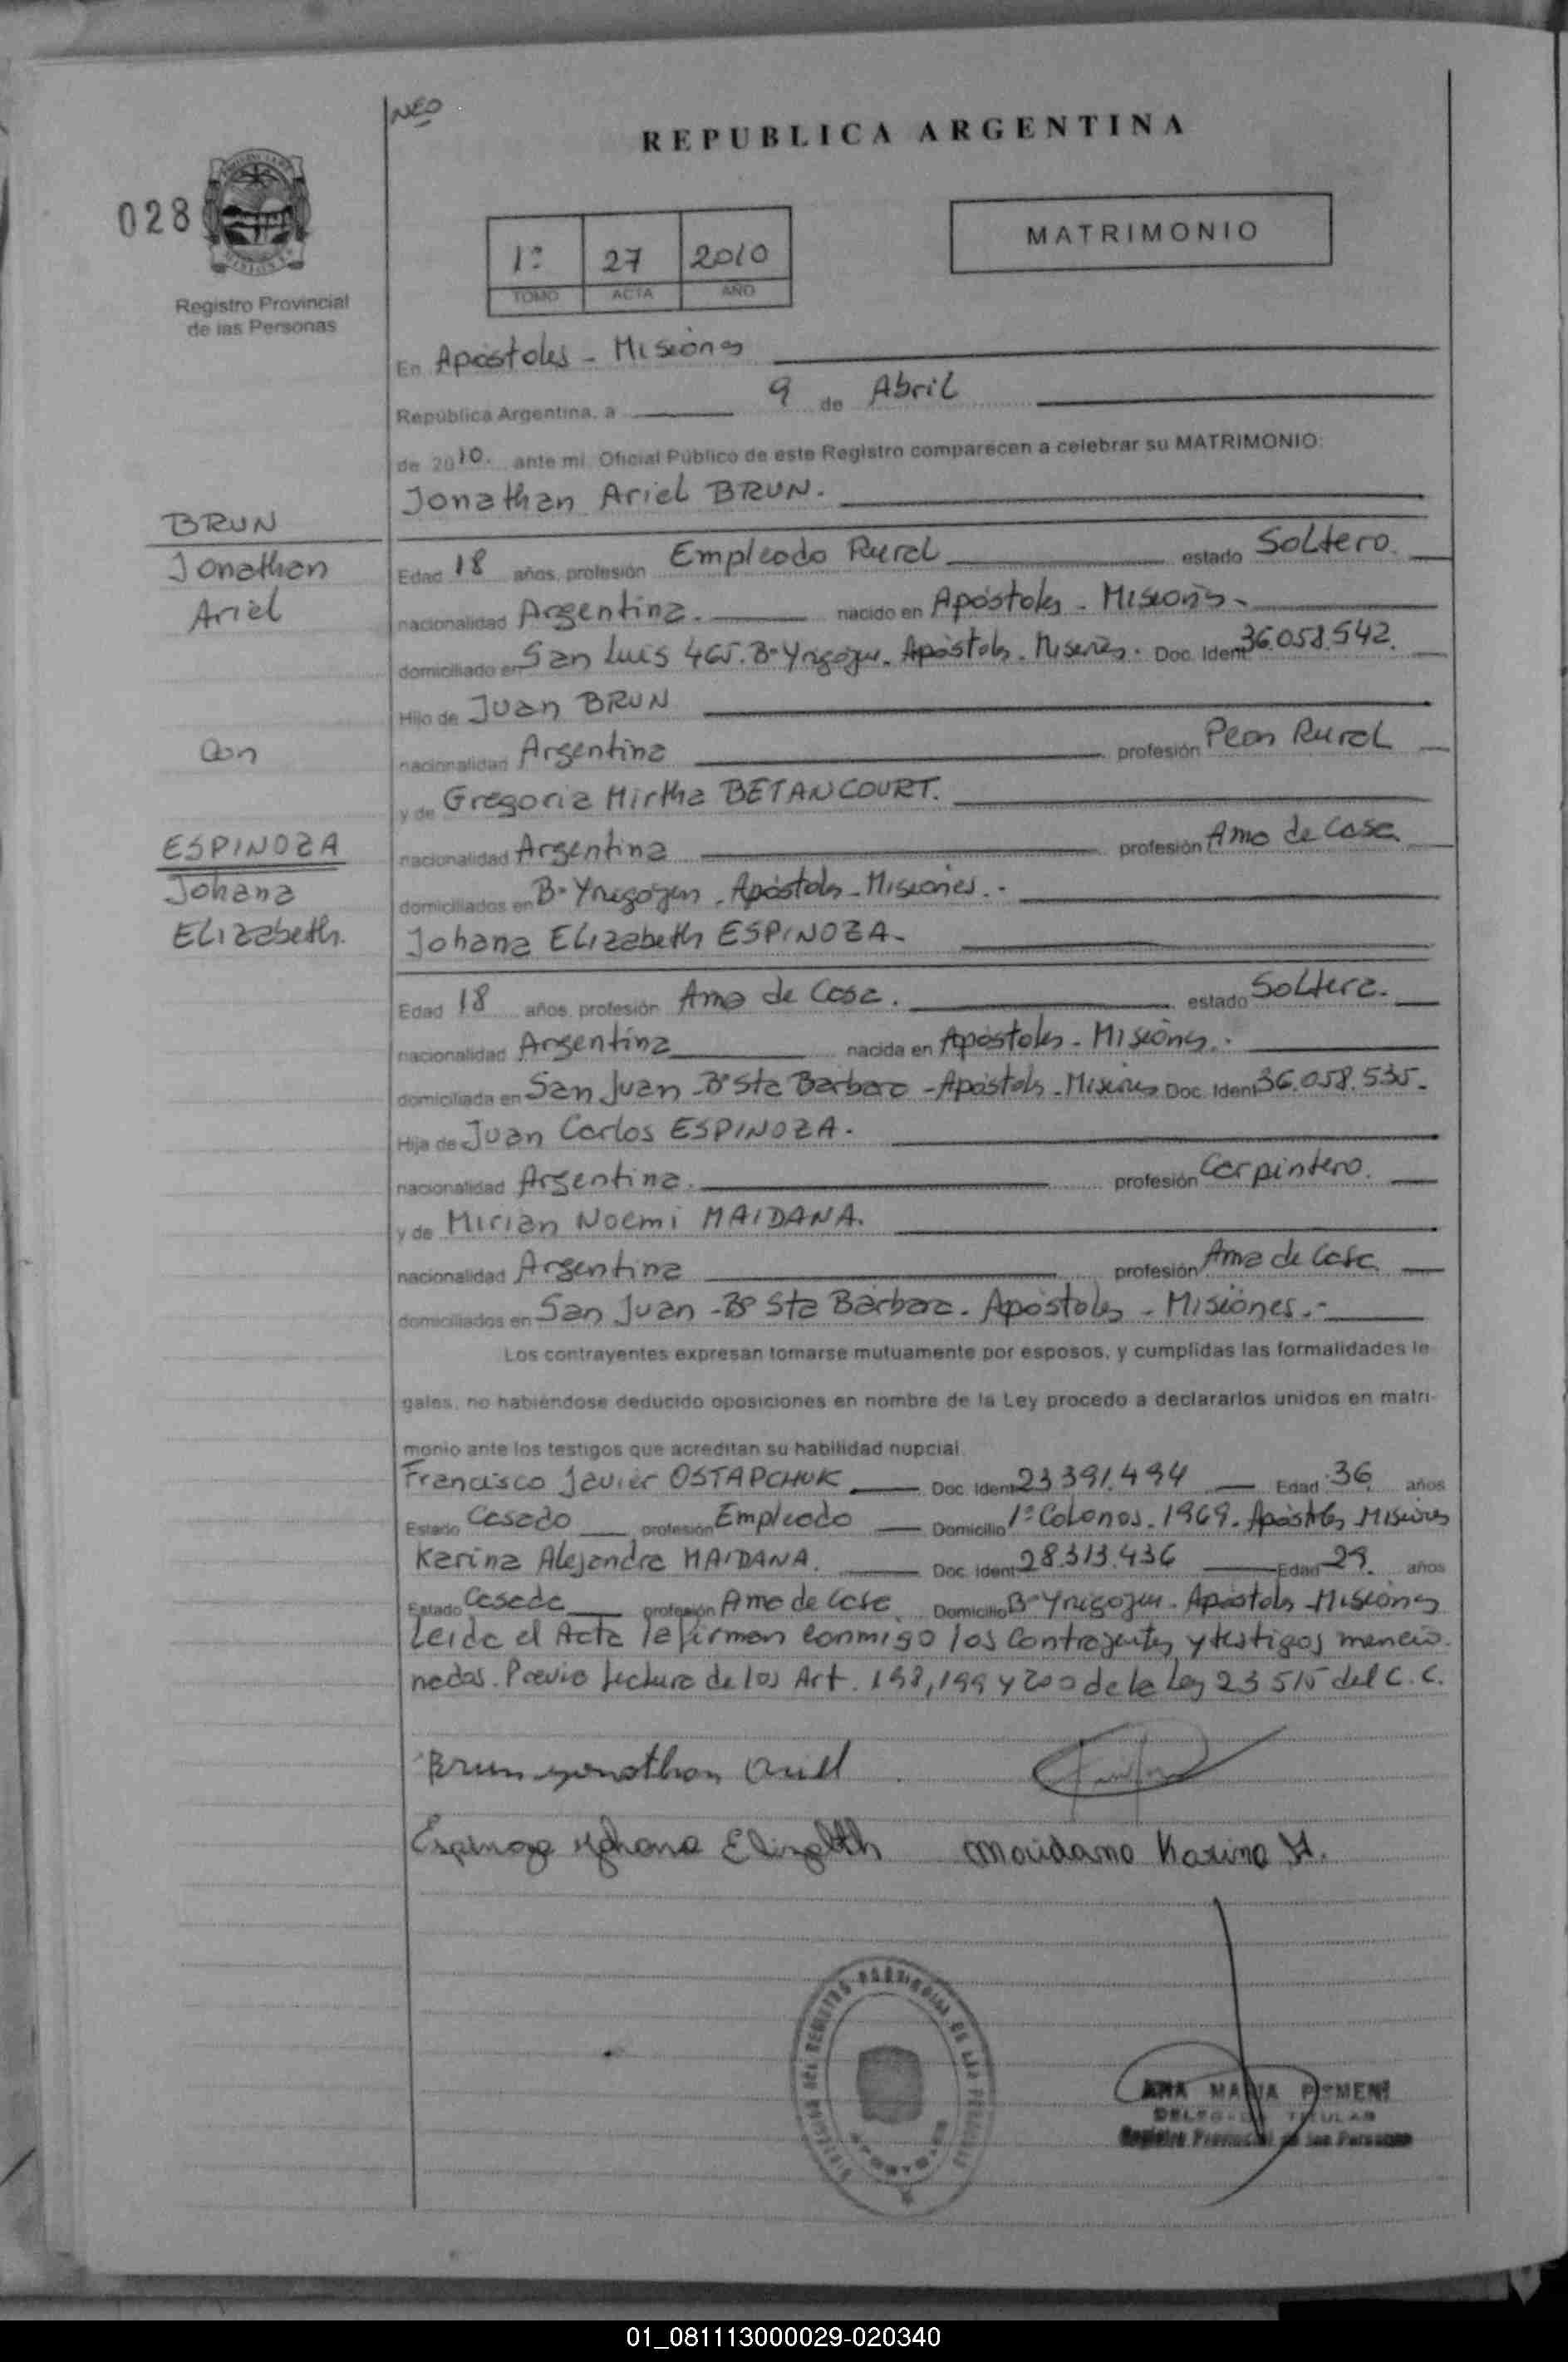 NEO
REPUBLICA ARGENTINA
028
MATRIMONIO
1º 27 2010
TOMO ACTA AÑO
Registro Provincial
de las Personas
En Apóstoles - Misiones
República Argentina, a 9 de Abril
de 2010. ante mi Oficial Público de este Registro comparecen a celebrar su MATRIMONIO:
Jonathan Ariel BRUN.
BRUN
Jonathan
Ariel
Con
ESPINOZA
Johana
Elizabeth.
Edad 18 años, profesión Empleado Rural estado Soltero.
nacionalidad Argentina. nacido en Apóstoles - Misiones -
domiciliado en San Luis 465. Bº Yrigoyen. Apóstoles - Misiones. Doc. Ident 36.058.542.
Hijo de Juan BRUN
nacionalidad Argentina profesión Peon Rural
y de Gregoria Mirtha BETANCOURT.
nacionalidad Argentina profesión Ama de Casa.
domiciliados en Bº Yrigoyen - Apóstoles - Misiones. -
Johana Elizabeth ESPINOZA -
Edad 18 años, profesión Ama de Casa. estado Soltera.
nacionalidad Argentina nacida en Apóstoles - Misiones. -
domiciliada en San Juan - Bº Sta Bárbara - Apóstoles - Misiones Doc. Ident 36.058.535.
Hija de Juan Carlos ESPINOZA.
nacionalidad Argentina. profesión Carpintero.
y de Mirian Noemi MAIDANA.
nacionalidad Argentina profesión Ama de Casa.
domiciliados en San Juan - Bº Sta Bárbara. Apóstoles - Misiones. -
Los contrayentes expresan tomarse mutuamente por esposos, y cumplidas las formalidades le-
gales, no habiéndose deducido oposiciones en nombre de la Ley procedo a declararlos unidos en matri-
monio ante los testigos que acreditan su habilidad nupcial.
Francisco Javier OSTAPCHUK Doc. Ident 23.391.494 Edad 36 años
Estado Casado profesión Empleado Domicilio 1º Colonos. 1969. Apóstoles Misiones
Karina Alejandra MAIDANA. Doc. Ident 28.313.436 Edad 29. años
Estado Casada profesión Ama de Casa. Domicilio Bº Yrigoyen - Apóstoles - Misiones
Leida el Acta la firman conmigo los Contrayentes y testigos mencio-
nados. Previo Lectura de los Art. 198, 199 y 200 de la Ley 23 515 del C. C.
Brun Jonathan Ariel
Espinoza Johana Elizabeth Maidana Karina A.
ANA MARIA
TITULAR
Registro Provincial de las Personas
01_081113000029-020340